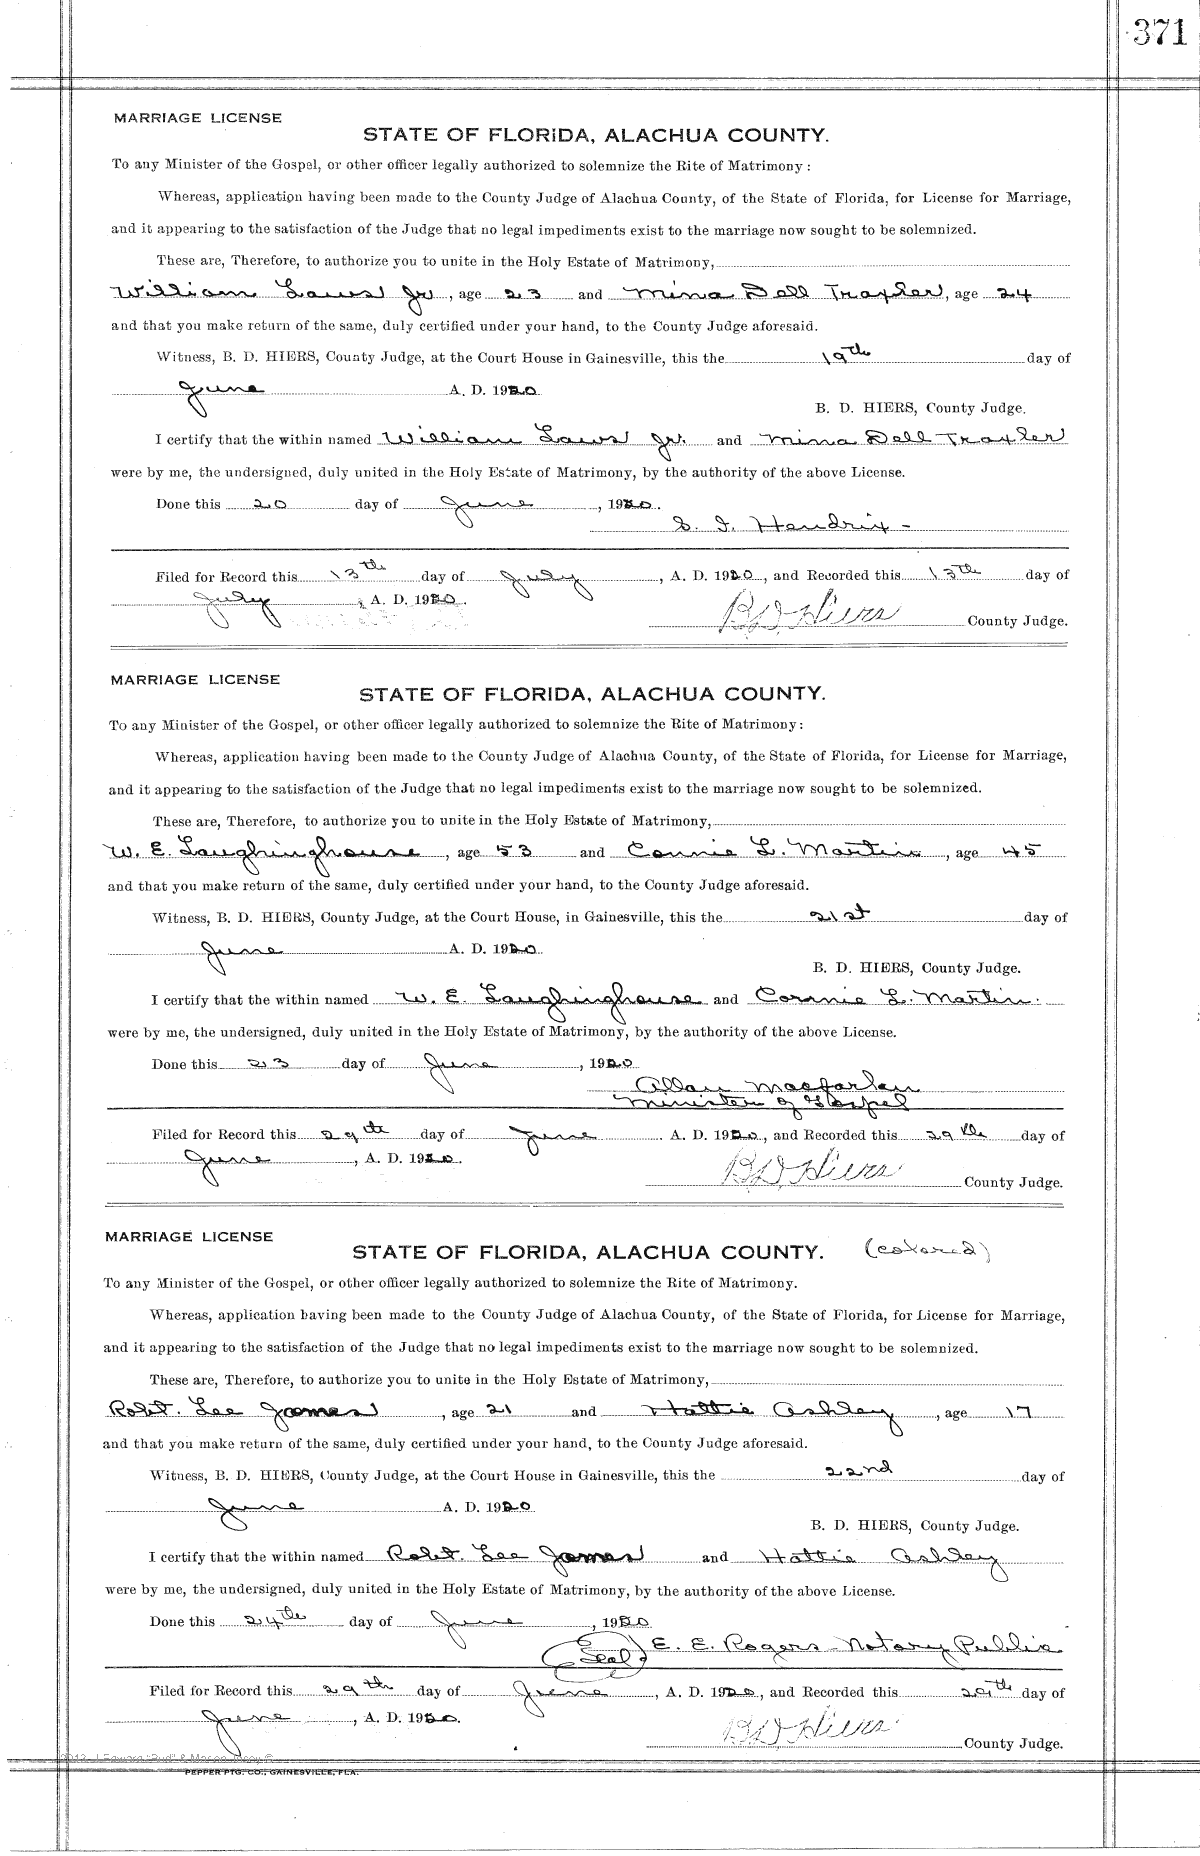 371
MARRIAGE LICENSE
STATE OF FLORIDA, ALACHUA COUNTY.
To any Minister of the Gospel, or other officer legally authorized to solemnize the Rite of Matrimony :
Whereas, application having been made to the County Judge of Alachua County, of the State of Florida, for License for Marriage,
and it appearing to the satisfaction of the Judge that no legal impediments exist to the marriage now sought to be solemnized.
These are, Therefore, to authorize you to unite in the Holy Estate of Matrimony,
William Laws Jr , age 23 and Mina Dell Traxler, age 24
and that you make return of the same, duly certified under your hand, to the County Judge aforesaid.
Witness, B. D. HIERS, County Judge, at the Court House in Gainesville, this the 19th day of
June A. D. 1920
B. D. HIERS, County Judge.
I certify that the within named William Laws Jr. and Mina Dell Traxler
were by me, the undersigned, duly united in the Holy Estate of Matrimony, by the authority of the above License.
Done this 20 day of June , 1920.
Hendrix -
Filed for Record this 13th day of July , A. D. 1920, and Recorded this 13th day of
July , A. D. 1920.
B D Hiers County Judge.
MARRIAGE LICENSE
STATE OF FLORIDA, ALACHUA COUNTY.
To any Minister of the Gospel, or other officer legally authorized to solemnize the Rite of Matrimony:
Whereas, application having been made to the County Judge of Alachua County, of the State of Florida, for License for Marriage,
and it appearing to the satisfaction of the Judge that no legal impediments exist to the marriage now sought to be solemnized.
These are, Therefore, to authorize you to unite in the Holy Estate of Matrimony,
W. E. Laughinghouse , age 53 and Connie L. Martin , age 45
and that you make return of the same, duly certified under your hand, to the County Judge aforesaid.
Witness, B. D. HIERS, County Judge, at the Court House, in Gainesville, this the 21st day of
June A. D. 1920.
B. D. HIERS, County Judge.
I certify that the within named W. E. Laughinghouse and Connie L. Martin.
were by me, the undersigned, duly united in the Holy Estate of Matrimony, by the authority of the above License.
Done this 23 day of June , 1920
Allan Macfarlan
Minister of Gospel
Filed for Record this 29th day of June A. D. 1920, and Recorded this 29th day of
June , A. D. 1920.
B D Hiers County Judge.
MARRIAGE LICENSE
STATE OF FLORIDA, ALACHUA COUNTY. (colored)
To any Minister of the Gospel, or other officer legally authorized to solemnize the Rite of Matrimony.
Whereas, application having been made to the County Judge of Alachua County, of the State of Florida, for License for Marriage,
and it appearing to the satisfaction of the Judge that no legal impediments exist to the marriage now sought to be solemnized.
These are, Therefore, to authorize you to unite in the Holy Estate of Matrimony,
Robt. Lee James , age 21 and Hattie Ashley , age 17
and that you make return of the same, duly certified under your hand, to the County Judge aforesaid.
Witness, B. D. HIERS, County Judge, at the Court House in Gainesville, this the 22nd day of
June A. D. 1920
B. D. HIERS, County Judge.
I certify that the within named Robt. Lee James and Hattie Ashley
were by me, the undersigned, duly united in the Holy Estate of Matrimony, by the authority of the above License.
Done this 24th day of June , 1920
(Seal) E. E. Rogers Notary Public
Filed for Record this 29th day of June , A. D. 1920, and Recorded this 29th day of
June , A. D. 1920.
B D Hiers County Judge.
PEPPER PTG. CO., GAINESVILLE, FLA.